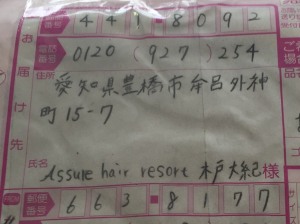 番号 441-8092
電話番号 0120 (927) 254
お届け先
住所
愛知県豊橋市牟呂外神
町15-7
氏名 Assure hair resort 木戸大紀 様
郵便番号 663-8177